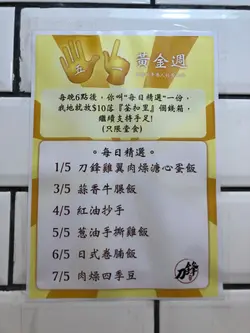 五一
黃金週
每晚6點後，你叫"每日精選"一份，
我地就放$10落『荃扣里』個錢箱，
繼續支持手足!
(只限堂食)
。每日精選。
1/5 刀鋒雞翼肉燥溏心蛋飯
3/5 蒜香牛𦟌飯
4/5 紅油抄手
5/5 葱油手撕雞飯
6/5 日式卷腩飯
7/5 肉燥四季豆
刀鋒